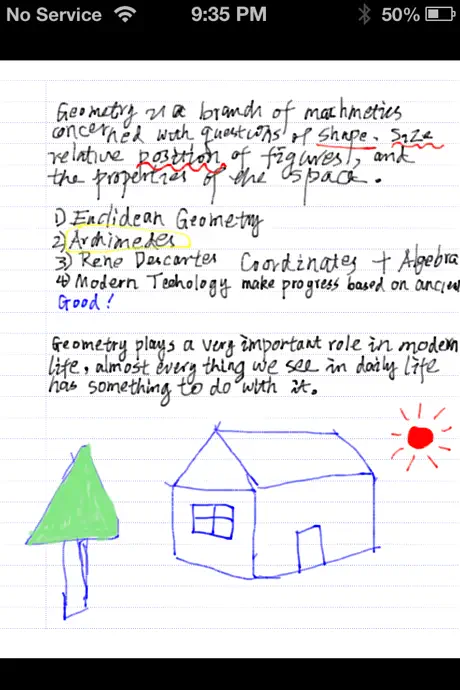 No Service 9:35 PM 50%
Geometry is a branch of machmetics
concerned with questions of shape, Saze
relative position of figures, and
the properties of the space.
1) Euclidean Geometry
2) Archimedes
3) Rene Descartes Coordinates + Algebra
4) Modern Techology make progress based on ancien
Good!
Geometry plays a very important role in modern
life, almost every thing we see in daily life
has something to do with it.